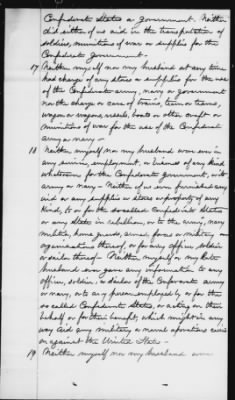 Confederate States a government. Neither
did either of us aid in the transportation of
soldiers, munitions of war or supplies for the
Confederate government.
17 Neither myself nor my husband at any time
had charge of any stores or supplies for the use
of the Confederate army, navy or government
nor the charge or care of trains, team or teams,
wagon or wagons, vessels, boats or other craft or
munitions of war for the use of the Confederate
army or navy -
18 Neither myself nor my husband ever were in
any service, employment, or business of any kind
whatsoever for the Confederate government, its
army or navy - Neither of us ever furnished any
aid or any supplies or stores or property of any
kind, to or for the so-called Confederate States
or any State in rebellion, or to the army, navy
militia, home guards, armed forces or military
organizations thereof, or for any officer, soldier
or sailor thereof - Neither myself or my late
husband ever gave any information to any
officer, soldier or sailor of the Confederate army
or navy, or to any person employed by or for the
so called Confederate States, or acting on their
behalf or for their benefit, which might in any
way aid any military or naval operations
or against the United States -
19 Neither myself nor my husband were